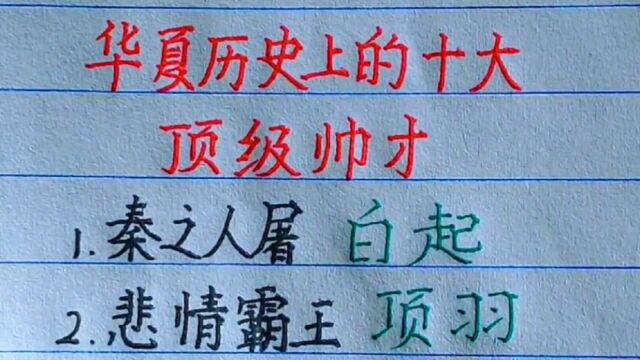 华夏历史上的十大
顶级帅才
1.秦之人屠 白起
2.悲情霸王 项羽